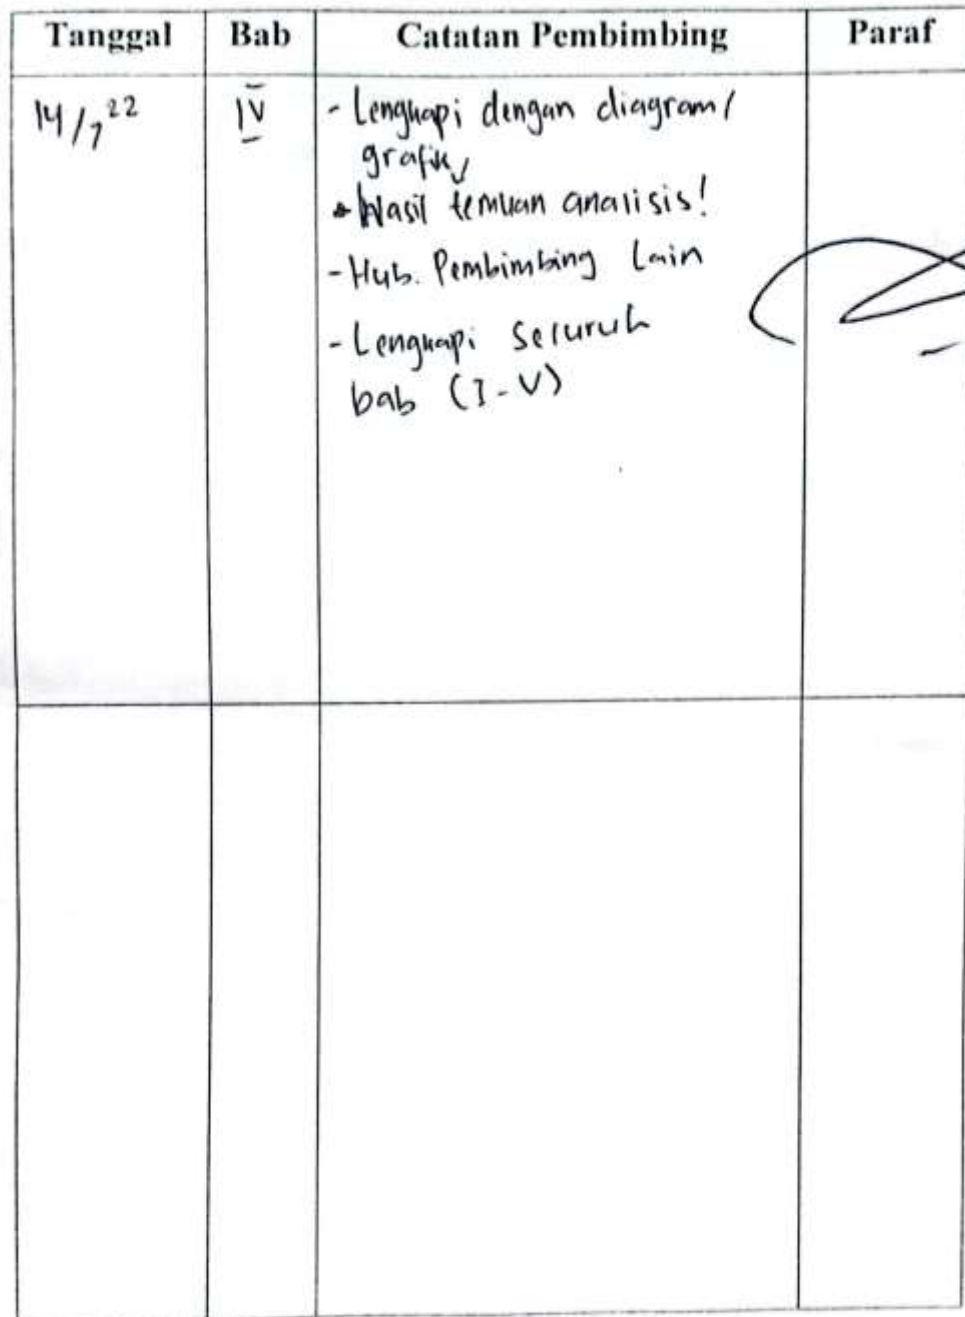 Tanggal Bab Catatan Pembimbing Paraf
14/7 22 IV - Lengkapi dengan diagram/
grafik
Hasil temuan analisis!
- Hub. Pembimbing Lain
- Lengkapi seluruh
bab (I-V)